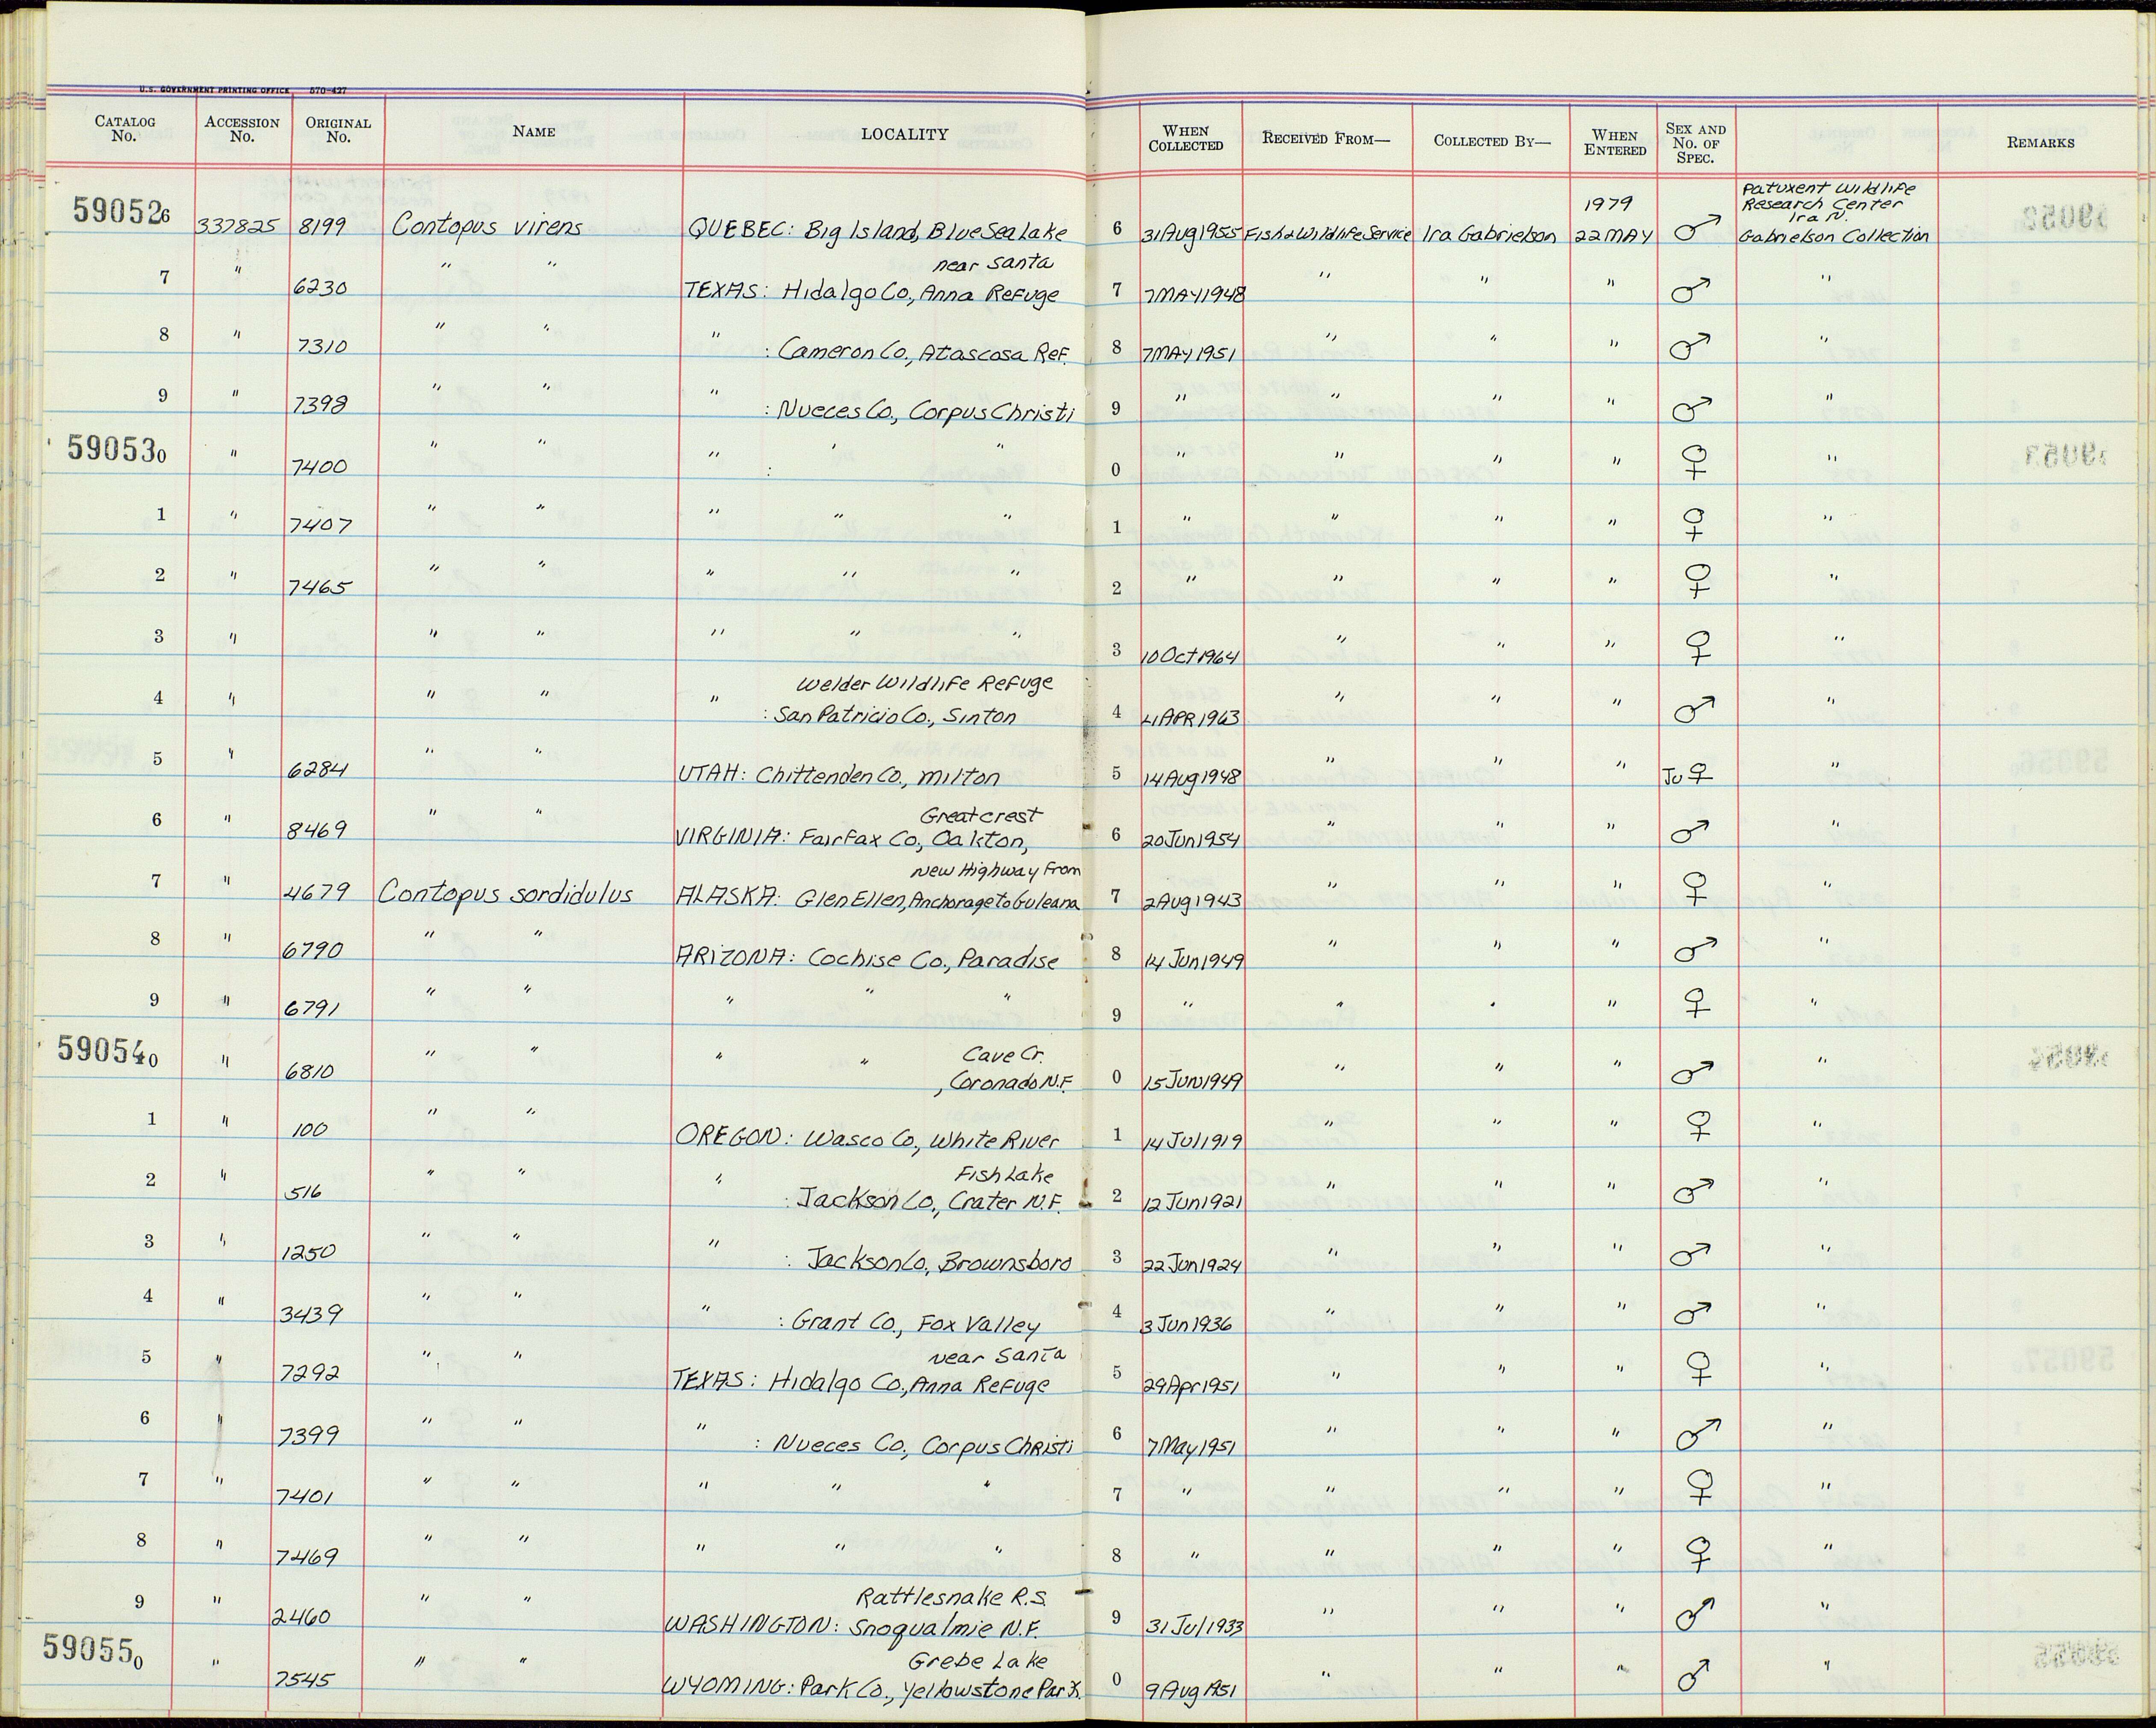 U.S. GOVERNMENT PRINTING OFFICE 570-427
CATALOG No. ACCESSION No. ORIGINAL No. NAME LOCALITY WHEN COLLECTED RECEIVED FROM— COLLECTED BY— WHEN ENTERED SEX AND No. OF SPEC. REMARKS
590526 337825 8199 Contopus virens QUEBEC: Big Island, Blue Sea Lake 6 31 Aug 1955 Fish & Wildlife Service Ira Gabrielson 1979 22 MAY ♂ Patuxent Wildlife Research Center Ira N. Gabrielson Collection
7 " 6230 " " TEXAS: Hidalgo Co., near Santa Anna Refuge 7 7 MAY 1948 " " " ♂ "
8 " 7310 " " " : Cameron Co., Atascosa Ref. 8 7 MAY 1951 " " " ♂ "
9 " 7398 " " " : Nueces Co., Corpus Christi 9 " " " " ♂ "
590530 " 7400 " " " : " " 0 " " " " ♀ "
1 " 7407 " " " " " 1 " " " " ♀ "
2 " 7465 " " " " " 2 " " " " ♀ "
3 " " " " " " 3 10 Oct 1964 " " " ♀ "
4 " " " " : Welder Wildlife Refuge San Patricio Co., Sinton 4 4 APR 1963 " " " ♂ "
5 " 6284 " " UTAH: Chittenden Co., Milton 5 14 Aug 1948 " " " Ju ♀ "
6 " 8469 " " VIRGINIA: Fairfax Co., Oakton, Greatcrest 6 20 Jun 1954 " " " ♂ "
7 " 4679 Contopus sordidulus ALASKA: Glen Ellen, New Highway From Anchorage to Guleana 7 2 Aug 1943 " " " ♀ "
8 " 6790 " " ARIZONA: Cochise Co., Paradise 8 14 Jun 1949 " " " ♂ "
9 " 6791 " " " " " 9 " " " " ♀ "
590540 " 6810 " " " " Cave Cr., Coronado N.F. 0 15 JUN 1949 " " " ♂ "
1 " 100 " " OREGON: Wasco Co., White River 1 14 Jul 1919 " " " ♀ "
2 " 516 " " " : Fish Lake Jackson Co., Crater N.F. 2 12 Jun 1921 " " " ♂ "
3 " 1250 " " " : Jackson Co., Brownsboro 3 22 Jun 1924 " " " ♂ "
4 " 3439 " " " : Grant Co., Fox Valley 4 3 Jun 1936 " " " ♂ "
5 " 7292 " " TEXAS: Hidalgo Co., near Santa Anna Refuge 5 29 Apr 1951 " " " ♀ "
6 " 7399 " " " : Nueces Co., Corpus Christi 6 7 May 1951 " " " ♂ "
7 " 7401 " " " " " 7 " " " " ♀ "
8 " 7469 " " " " " 8 " " " " ♀ "
9 " 2460 " " WASHINGTON: Rattlesnake R.S. Snoqualmie N.F. 9 31 Jul 1933 " " " ♂ "
590550 " 7545 " " WYOMING: Park Co., Grebe Lake Yellowstone Park. 0 9 Aug 1951 " " " ♂ "